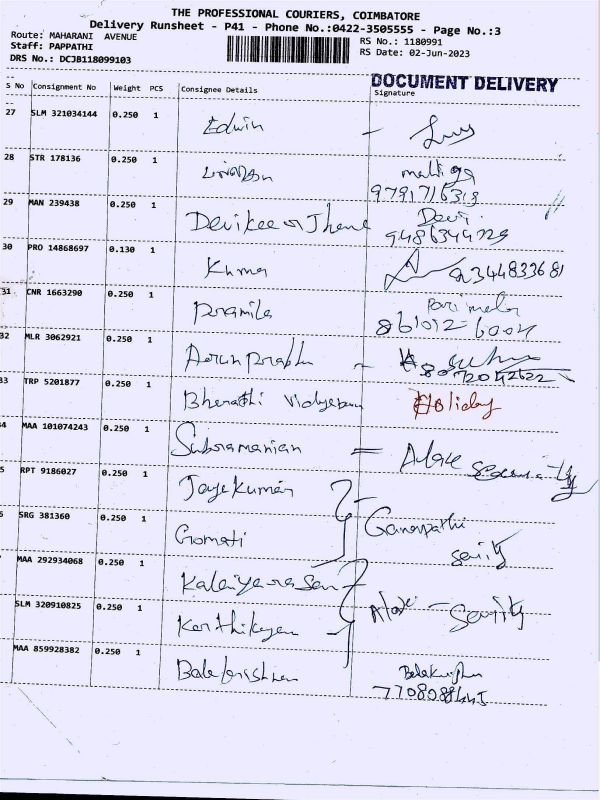 THE PROFESSIONAL COURIERS, COIMBATORE
Delivery Runsheet - P41 - Phone No.:0422-3505555 - Page No.:3
Route: MAHARANI AVENUE RS No.: 1180991
Staff: PAPPATHI RS Date: 02-Jun-2023
DRS No.: DCJB118099103
DOCUMENT DELIVERY
S No Consignment No Weight PCS Consignee Details Signature
27 SLM 321034144 0.250 1 Edwin -
28 STR 178136 0.250 1
9791716319
29 MAN 239438 0.250 1 Devikee Devi
9486344729
30 PRO 14868697 0.130 1 Kumar 9344833681
31 CNR 1663290 0.250 1 Pramila Parimala
861012-6004
32 MLR 3062921 0.250 1 Arun prabhu - Suha
8072042622
33 TRP 5201877 0.250 1 Bharathi Vidyabavan Holiday
34 MAA 101074243 0.250 1 Subramanian = Alak security
35 RPT 9186027 0.250 1 Jayakumar
36 SRG 381360 0.250 1 Gomati Ganapathi
MAA 292934068 0.250 1 Kalaiyarasan
SLM 320910825 0.250 1 Karthikeyan
MAA 859928382 0.250 1 Balakrishnan